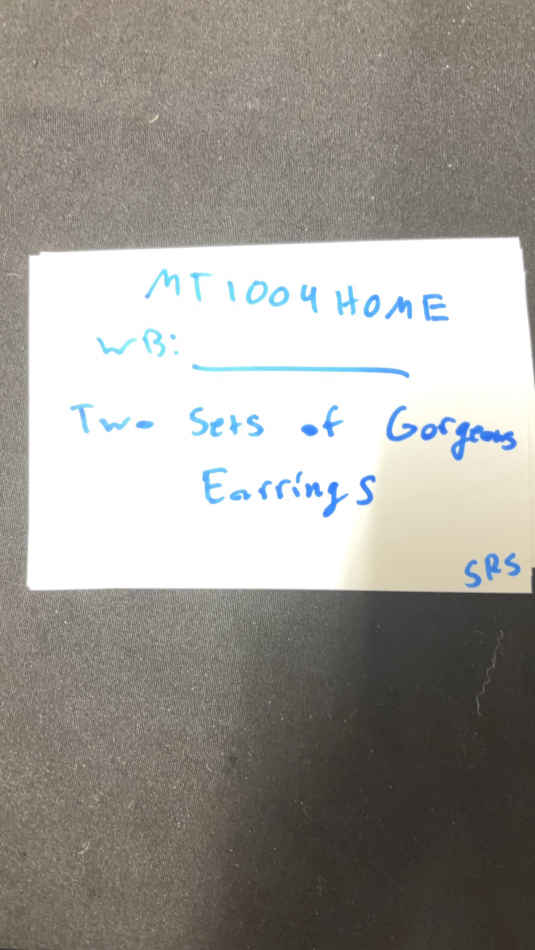 MT1004HOME
WB: ________
Two Sets of Gorgeous
Earrings
SRS